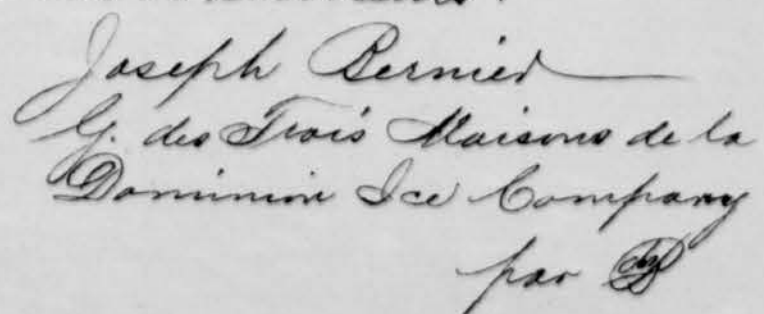 Joseph Bernier
G. des Trois Maisons de la
Dominion Ice Company
par